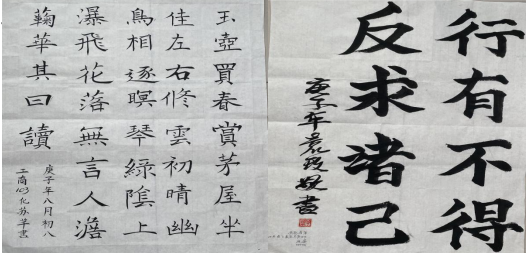 行有不得
反求諸己
庚子年
玉壺買春賞茅屋坐
佳左右修雲初晴幽
鳥相逐暝琴綠陰上
瀑飛花落無言人澹
鞠華其曰讀
庚子年八月初八
工商